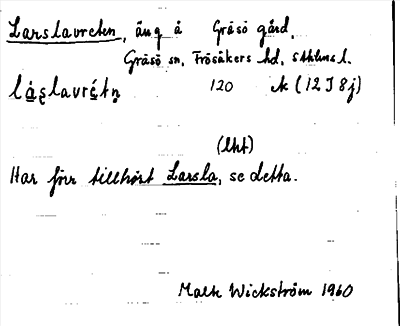 Larslavreten, äng å Gräsö gård,
Gräsö sn, Frösåkers hd, Sthlms l.
120 Ak (12 I 8j)
(Ukt)
Har förr tillhört Larsla, se detta.
Wickström 1960